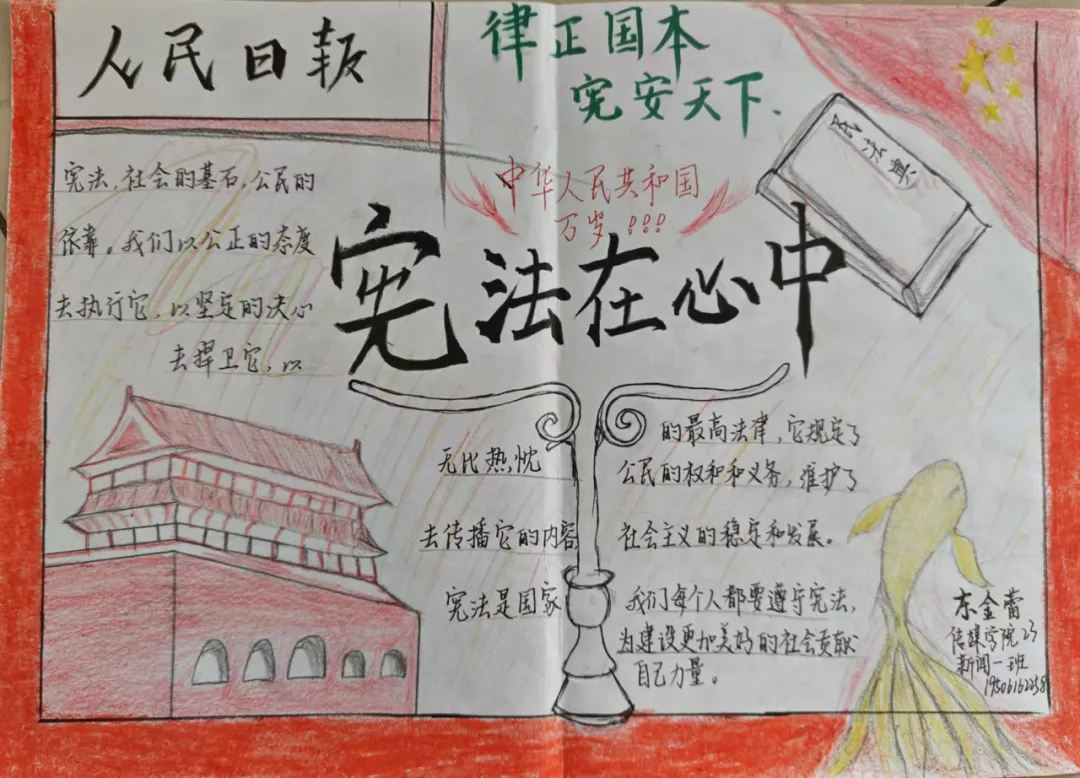 人民日报
律正国本
宪安天下.
民法典
中华人民共和国
万岁!!!
宪法在心中
宪法,社会的基石,公民的
依靠。我们以公正的态度
去执行它,以坚定的决心
去捍卫它,以
无比热忱
去传播它的内容
宪法是国家
的最高法律,它规定了
公民的权和和义务,维护了
社会主义的稳定和发展。
我们每个人都要遵守宪法,
为建设更加美好的社会贡献
自己力量。
东金蕾
传媒学院23
新闻一班
19506162258